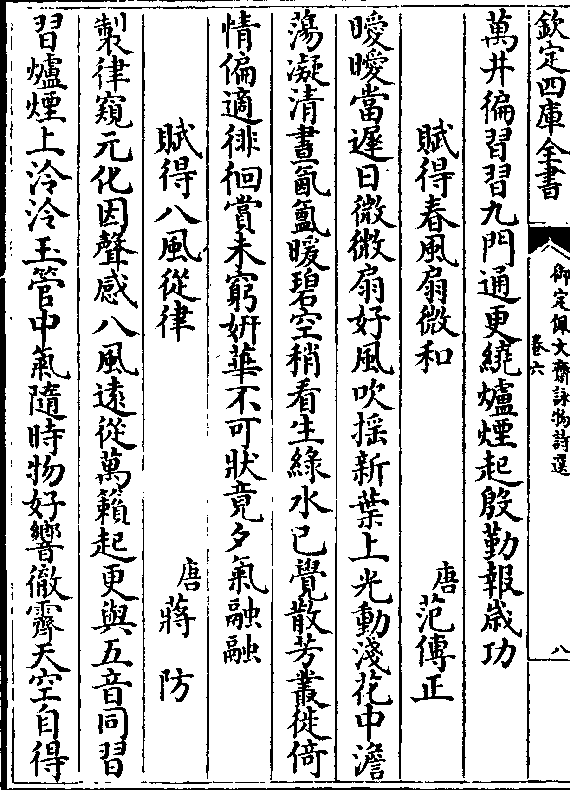 欽定四庫全書
御定佩文齋詠物詩選
卷六
八
萬井徧習習九門通更繞爐煙起殷勤報歳功
賦得春風扇微和
唐范傳正
曖曖當遲日微微扇好風吹揺新葉上光動淺花中澹
蕩凝清晝氤氲暖碧空稍看生緑水已覺散芳叢徙倚
情偏適徘徊賞未窮妍華不可狀竟夕氣融融
賦得八風從律
唐蔣防
製律窺元化因聲感八風遠從萬籟起更與五音同習
習爐煙上泠泠玉管中氣隨時物好響徹霽天空自得